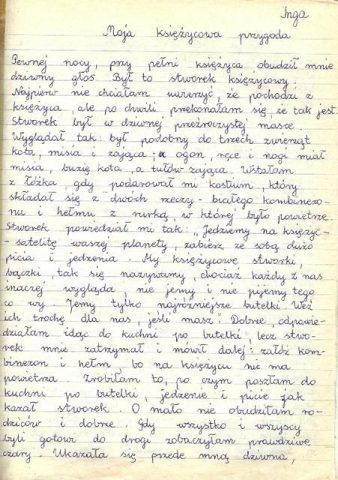 Inga
Moja księżycowa przygoda
Pewnej nocy, przy pełni księżyca obudził mnie
dziwny głos. Był to stworek księżycowy.
Najpierw nie chciałam uwierzyć, że pochodzi z
księżyca, ale po chwili przekonałam się, że tak jest
Stworek był w dziwnej przeźroczystej masce.
Wyglądał tak: był podobny do trzech zwierząt
kota, misia i zająca; ogon, ręce i nogi miał
misia, buzię kota, a tułów zająca. Wstałam
z łóżka, gdy podarował mi kostium, który
składał się z dwóch rzeczy - białego kombinezo-
nu i hełmu z rurką, w której było powietrze
Stworek powiedział mi tak: "Jedziemy na księżyc-
- satelitę waszej planety, zabierz ze sobą dużo
picia i jedzenia. My księżycowe stworki,
bajczki, tak się nazywamy, chociaż każdy z nas
inaczej wygląda, nie jemy i nie pijemy tego
co wy. Jemy tylko najróżniejsze butelki. Weź
ich trochę dla nas, jeśli masz." Dobrze, odpowie-
działam idąc do kuchni po butelki, lecz stwo-
rek mnie zatrzymał i mówił dalej: załóż kom-
binezon i hełm, bo na księżycu nie ma
powietrza. Zrobiłam to, po czym poszłam do
kuchni po butelki, jedzenie i picie jak
kazał stworek. O mało nie obudziłam ro-
dziców i dobrze. Gdy wszystko i wszyscy
byli gotowi do drogi zobaczyłam prawdziwe
czary. Ukazała się przede mną dziwna,